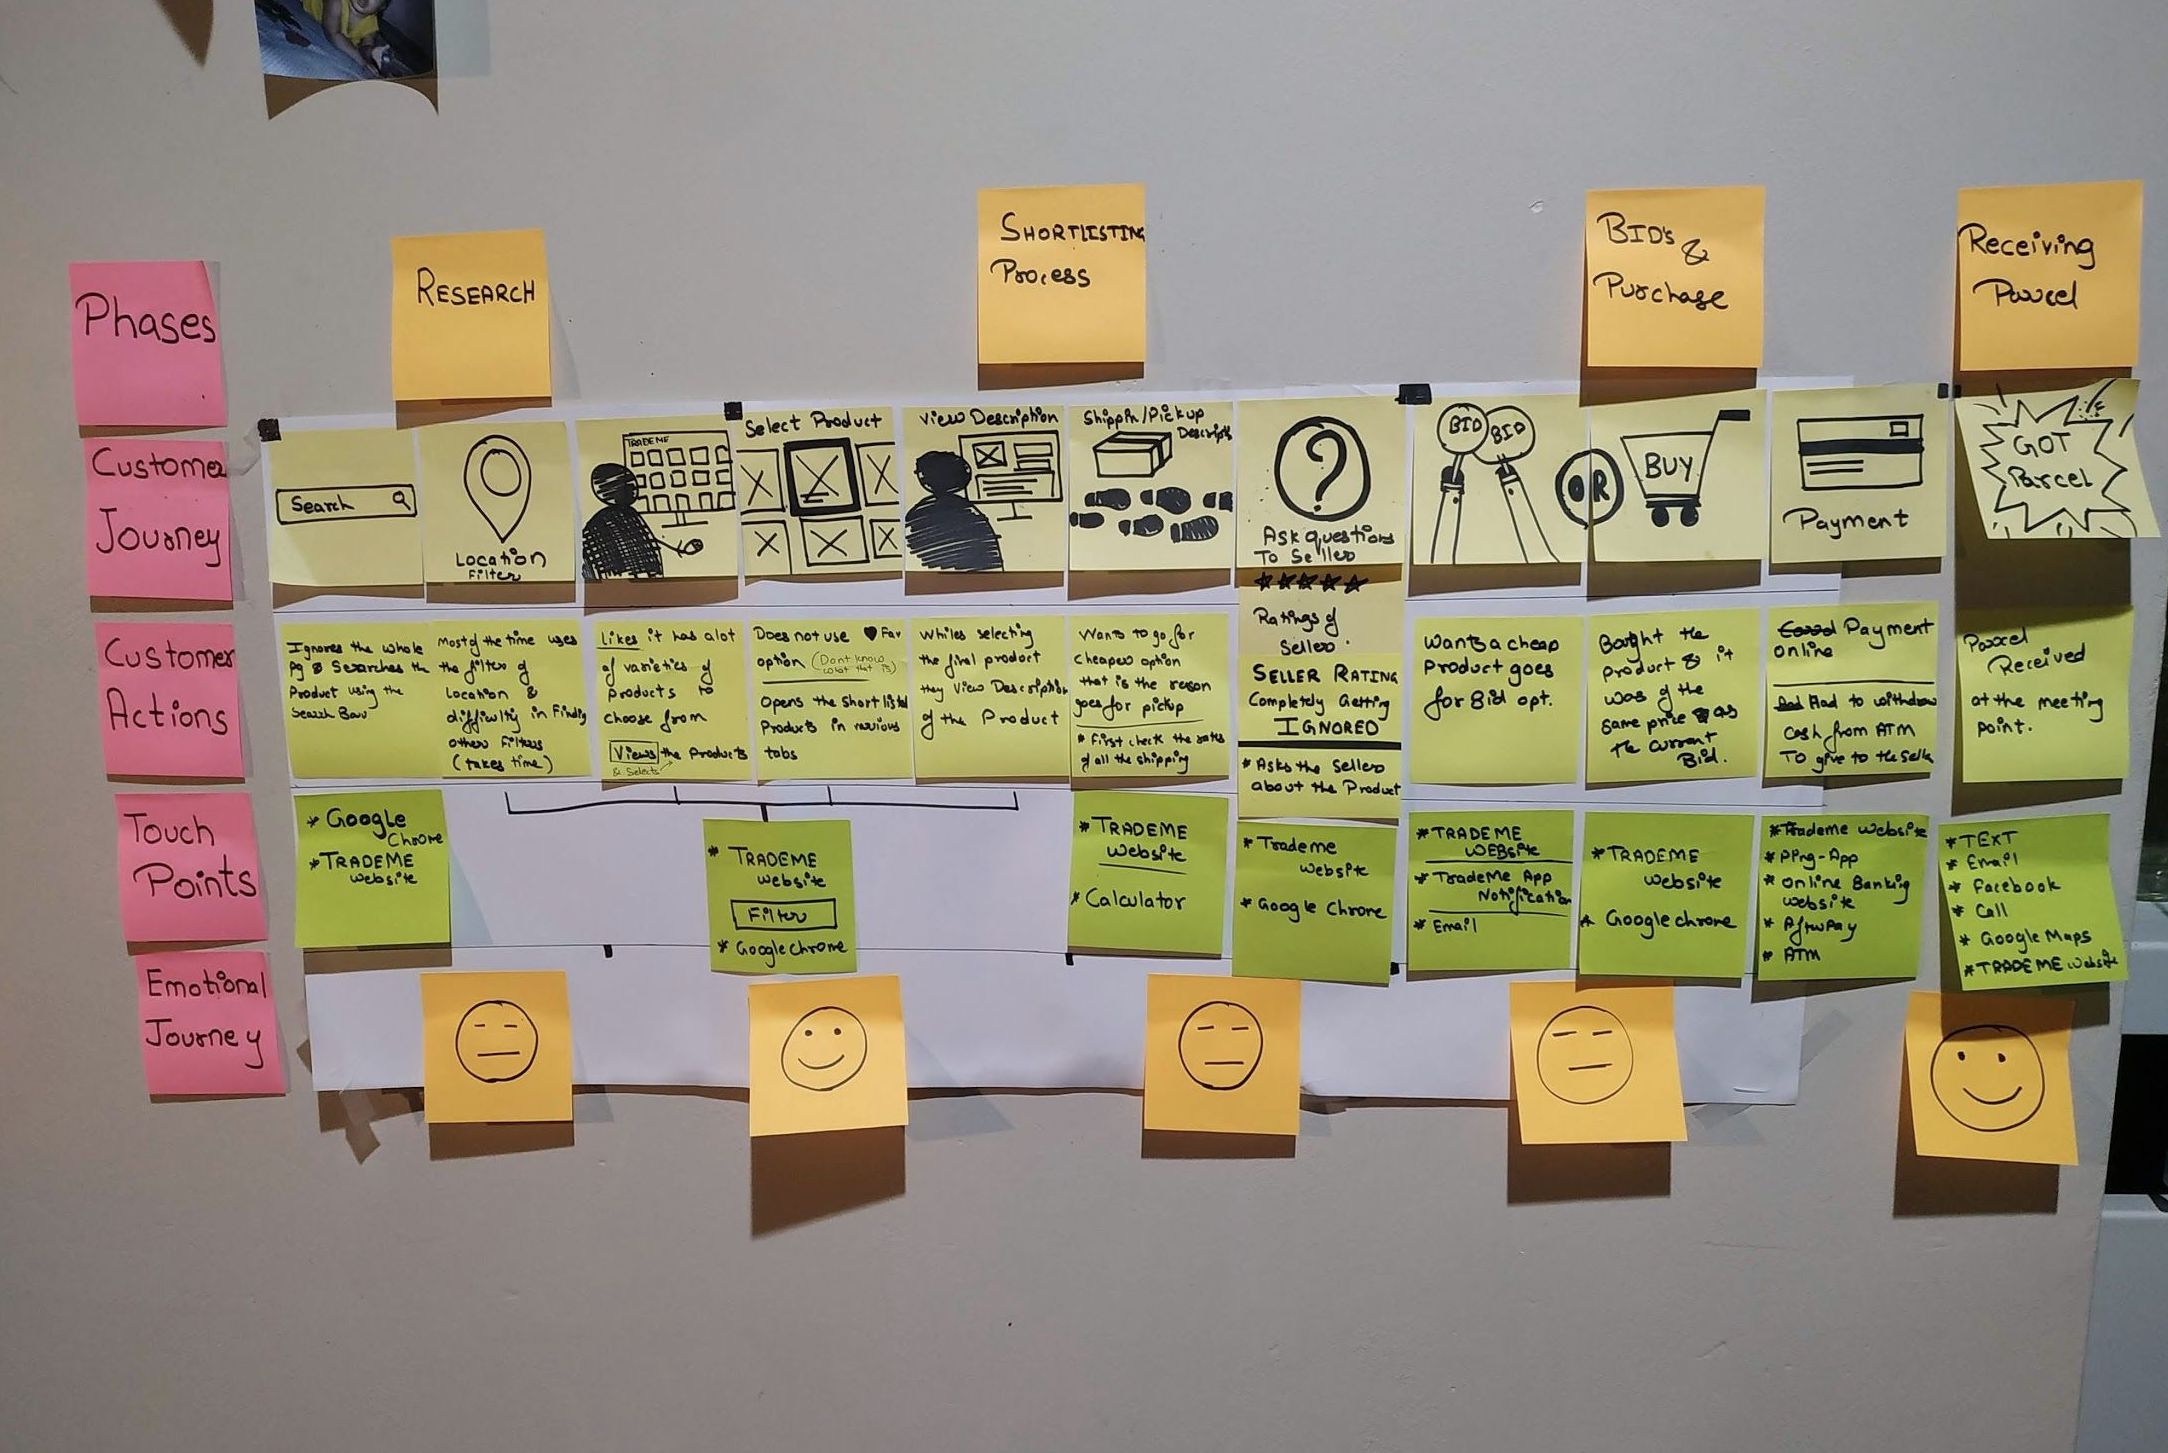 Phases
RESEARCH
SHORTLISTING
Process
BID's
&
Purchase
Receiving
Parcel
Customer
Journey
Search
Location
Filter
TRADEME
Select Product
View Description
Shippin/Pickup
?
Ask questions
To Seller
BID
BID
OR
BUY
Payment
GOT
Parcel
Customer
Actions
Ignores the whole
Pg & Searches the
Product using the
Search Bar
Most of the time uses
the filter of
Location &
difficulty in Finding
other Filters
(takes time)
Likes it has alot
of varieties of
products to
choose from
Views the Products
& Selects
Does not use ♥ Fav
option (Dont know
what that is)
Opens the Short listed
Products in various
tabs
Whiles selecting
the final product
they View Description
of the Product
Wants to go for
cheaper option
that is the reason
goes for pickup
* First check the rates
of all the shipping
★★★★★
Ratings of
Seller.
SELLER RATING
Completely Getting
IGNORED
* Asks the Seller
about the Product
Wants a cheap
product goes
for Bid opt.
Bought the
product & it
was of the
same price as
the current
Bid.
Payment
online
Had to withdraw
cash from ATM
To give to the Seller
Parcel
Received
at the meeting
point.
Touch
Points
* Google
Chrome
* TRADEME
website
* TRADEME
website
Filter
* Google chrome
* TRADEME
website
* Calculator
* Trademe
website
* Google Chrome
* TRADEME
WEBSITE
* TradeMe App
Notification
* Email
* TRADEME
website
* Google chrome
* Trademe website
* Ping-App
* Online Banking
website
* AfterPay
* ATM
* TEXT
* Email
* Facebook
* Call
* Google Maps
* TRADEME website
Emotional
Journey